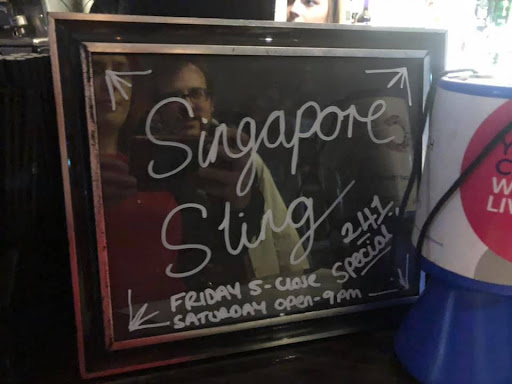 Singapore
Sling
241
Special
FRIDAY 5-CLOSE
SATURDAY OPEN-9PM
Y
C
W
LIV